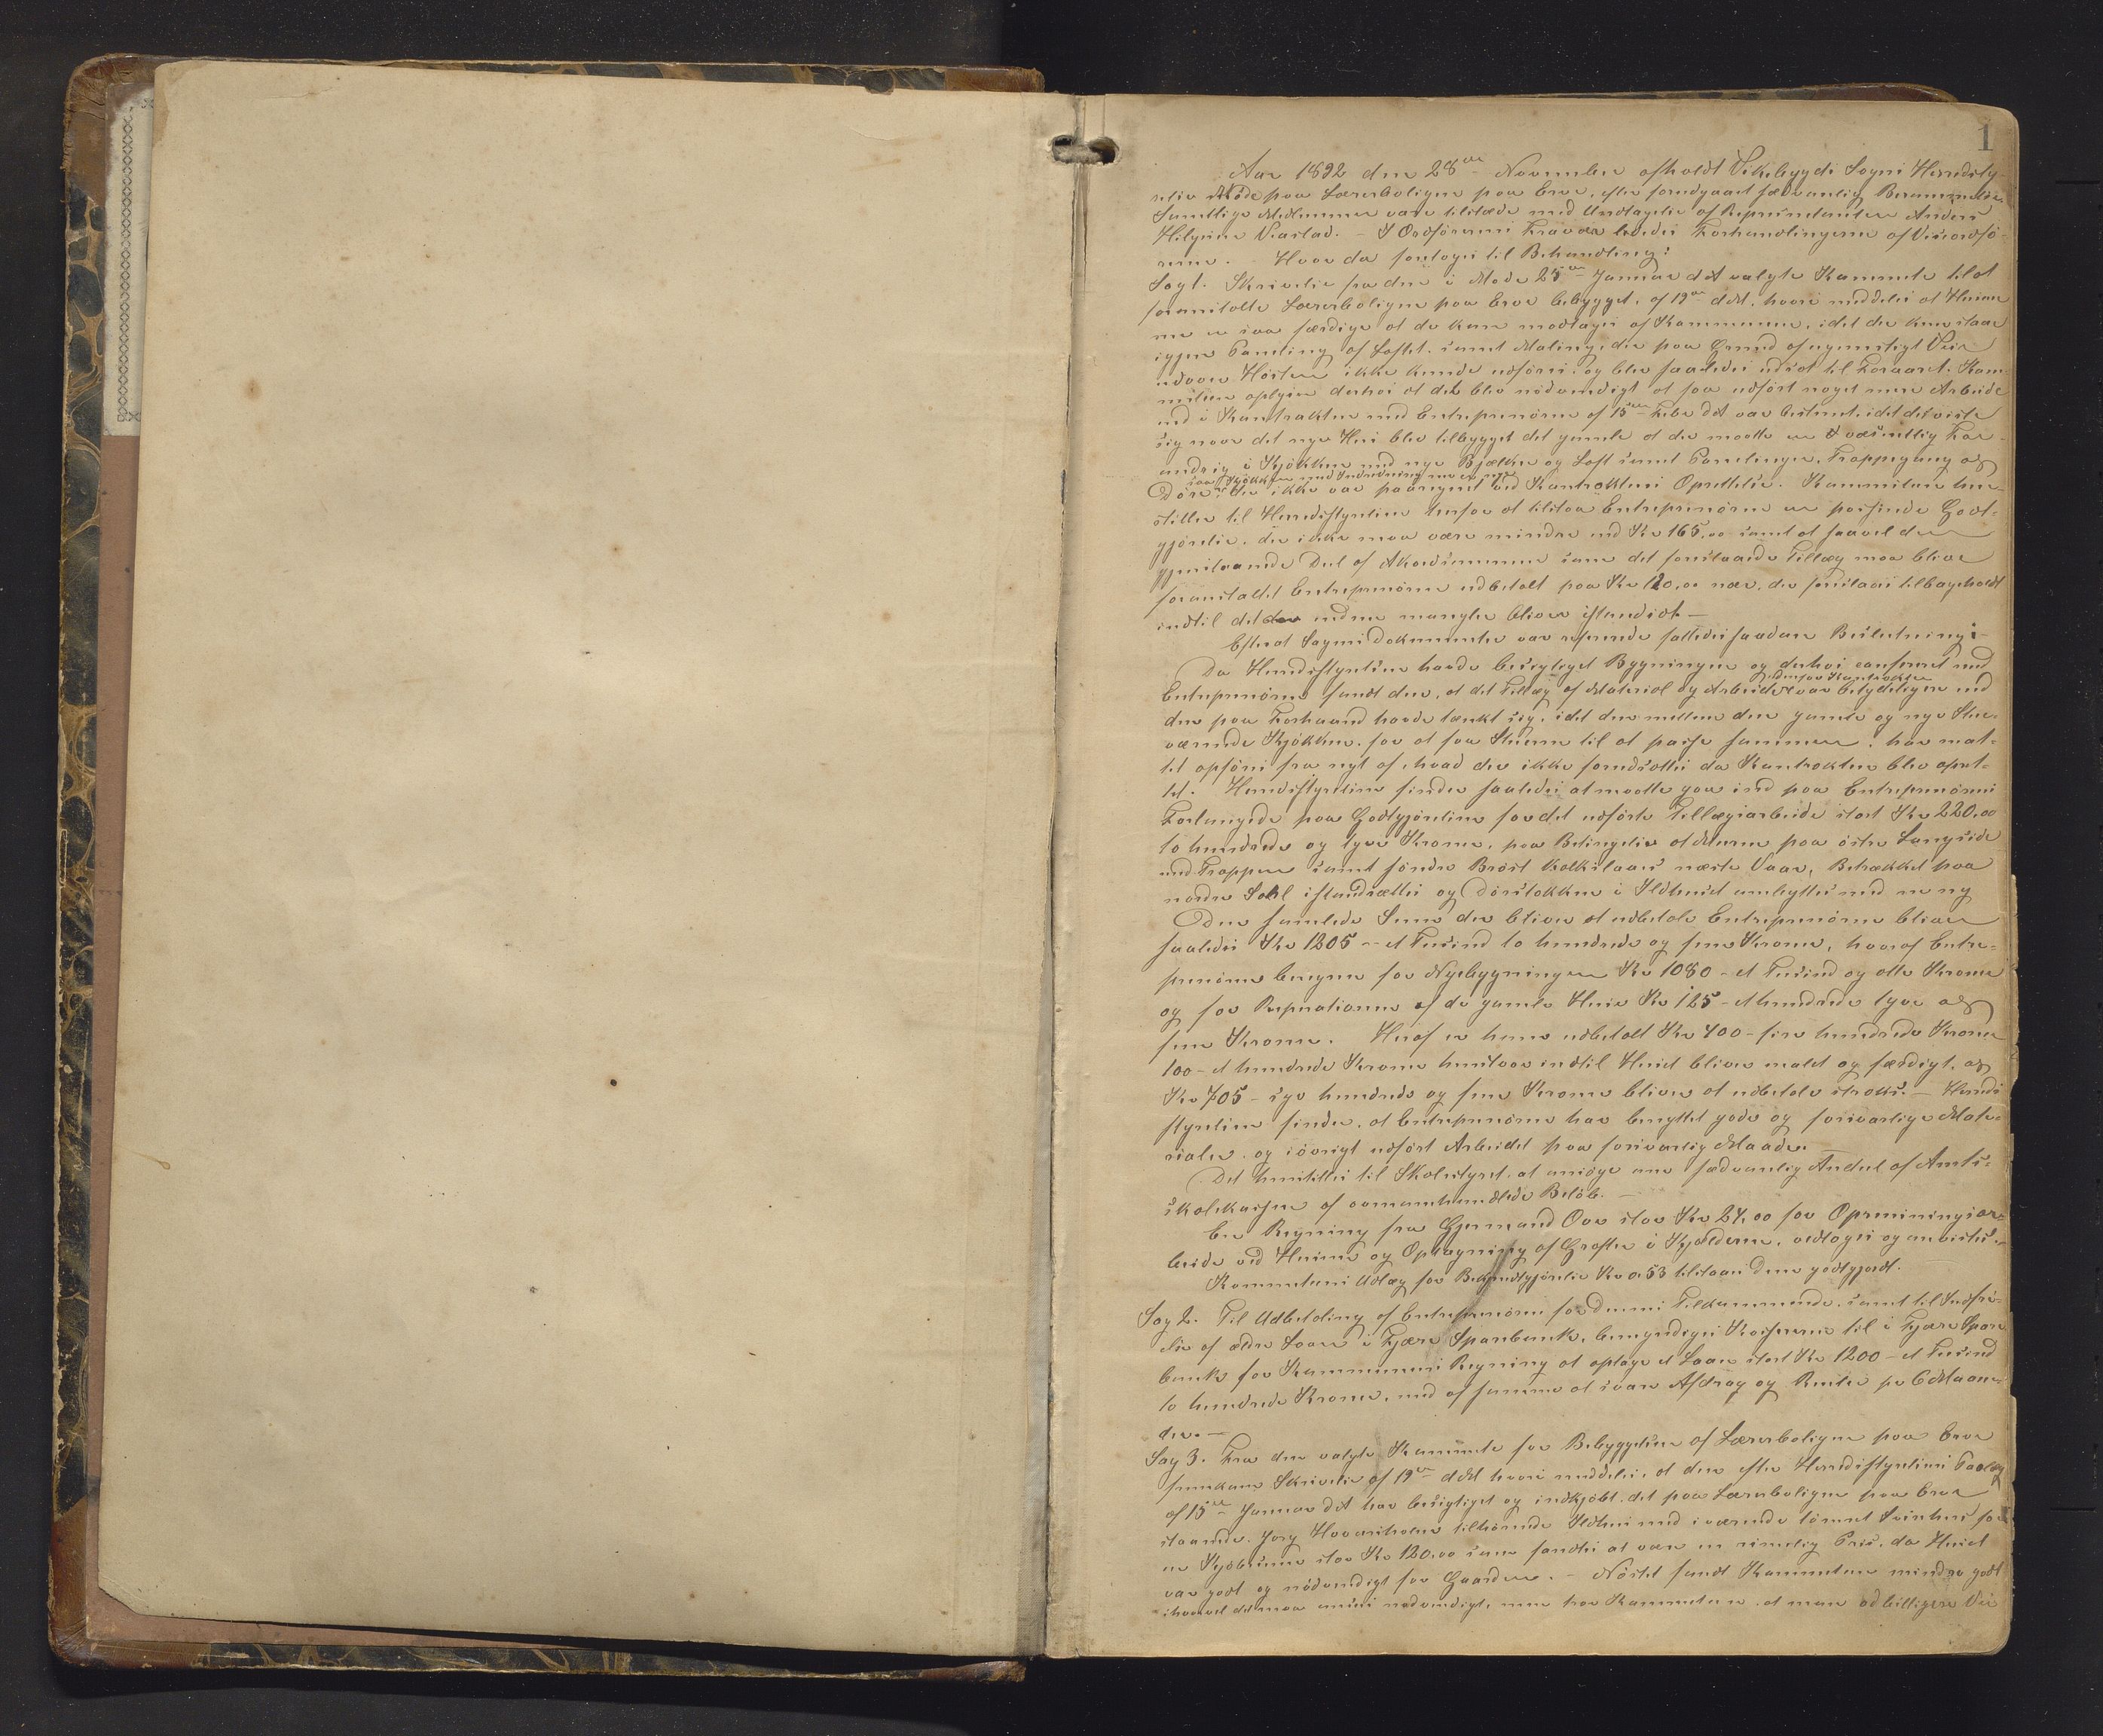 1
Aar 1892 den 28de November afholdt Vikebygds Sogns Herredsty-
relse Møde paa Lærerboligen paa Ervæ, efter foregaaet sædvanlig Berammelse
Samtlige Medlemmer vare tilstede med Undtagelse af Repræsentanten Anders
Helgesen Viastad. – I Ordførerens Fravær lededes Forhandlingerne af Viceordfø-
reren. – Hvor da foretoges til Behandling:
Sag 1. Skrivelse fra den i Møde 25de Januar d.A. valgte Kommitte til at
foranstalte Lærerboligen paa Ervæ bebygget, af 19de d.M. hvori meddeles at Husene
nu er saa færdige at de kan modtages af Kommunen, idet der kun staar
igjen Paneling af Loftet samt Maling, der paa Grund af ugunstigt Veir
udover Høsten ikke kunde udføres og blev saaledes udsat til Foraaret. Kom-
mitteen oplyser derhos at det blev nødvendigt at faa udført noget mere Arbeide
end i Kontrakten med Entreprenøren af 15de Febr d.A. var bestemt, idet det viste
sig naar det nye Hus blev tilbygget det gamle at der maatte en væsentlig For-
andrig i Kjøkken med nye Bjælker og Loft samt Panelinger, Trappegang og
saa Kjøkken med Indredning
Døre, der ikke var paaregnet ved Kontraktens Oprettelse. Kommiteen hen-
stiller til Herredstyrelsen herfor at tilstaa Entreprenøren en passende Godt-
gjørelse, der ikke maa være mindre end Kr 165,00 samt at saavel den
gjenstaaende Deel af Akordsummen som det forestaaende Tillæg maa blive
foranstaltet Entreprenøren udbetalt paa Kr 120,00 nær, der foreslaaes tilbageholdt
indtil det endnu mangler bliver istandsat –
Efterat Sagens Dokumenter var refererede fattedes saadan Beslutning:
Da Herredstyrelsen havde besigtiget Bygningen og derhos confereret med
Entreprenøren fandt den, at det Tillæg af Material og Arbeide var betydeligere end
udenfor Kontrakten
den paa Forhaand havde tænkt sig, idet den mellem den gamle og nye Stue
værende Kjøkken, for at faa Stuerne til at passe sammen, har maat-
tet opføres fra nyt af, hvad der ikke forudsattes da Kontrakten blev opret-
tet. Herredstyrelsen finder saaledes at maatte gaa ind paa Entreprenørens
Forlangende paa Godtgjørelsen for det udførte Tillægsarbeide stort Kr 220,00
to hundrede og tyve Kroner, paa Betingelse at Muren paa østre Langside
ved Trappen samt søndre Brøst kalkslaaes næste Vaar, Betrækket paa
nordre Sahl istandsættes og Dørstokken i Ildhuset ombyttes med en ny
Den samlede Sum der bliver at udbetale Entreprenøren bliver
saaledes Kr 1205 – et Tusind to hundrede og fem Kroner, hvoraf Entre-
prenøren beregner for Nybygningen Kr 1080 – et Tusind og otti Kroner
og for Reparationen af de gamle Huse Kr 125 – et hundrede tyve og
fem Kroner. Heraf er ham udbetalt Kr 400 – fire hundrede Kroner
100 – et hundrede Kroner henstaar indtil Huset bliver malet og færdigt, og
Kr 705 – syv hundrede og fem Kroner bliver at udbetale straks. – Herreds-
styrelsen finder, at Entreprenøren har benyttet gode og forsvarlige Mate-
rialer og iøvrigt udført Arbeidet paa forsvarlig Maade. –
Det henstilles til Skolestyret at ansøge om sædvanlig Andeel af Amts-
skolekassen af ovenanmeldte Beløb. –
En Regning fra Gjermund Ovæ stor Kr 24,00 for Oprensningsar-
beide ved Husene og Optagning af Grøfter i Kjælderen, vedtages og anvises. –
Kommiteens Udlæg for Bekjendtgjørelse Kr 0,53 tilstaaes dem godtgjort.
Sag 2. Til Udbetaling af Entreprenøren for dennes Tilkommende, samt til Indfri-
else af ældre Laan i Fjære Sparebank, bemyndiges Kassereren til i Fjære Spare
bank for Kommunens Regning at optage et Laan stort Kr 1200 – et Tusind
to hundrede Kroner, med af samme at svare Afdrag og Renter pr 6 Maane-
der. –
Sag 3. Fra den valgte Kommitte for Bebyggelsen af Lærerboligen paa Ervæ
fremkom Skrivelse af 19de d.M. hvori meddeles, at den efter Herredstyrelsens Paalæg
af 15de Januar d.A. har besigtiget og indkjøbt det paa Lærerboligen paa Ervæ
staaende, Jørg Hovarsholm tilhørende Ildhus med iværende tømret Svinhus for
en Kjøbesum stor Kr 120,00 som fandtes at være en rimelig Pris, da Huset
var godt og nødvendigt for Gaarden. – Nøstet fandt Kommiteen mindre godt
ihvorvel det maa ansees nødvendigt, men tror Kommiteen at man ad billigere Vei